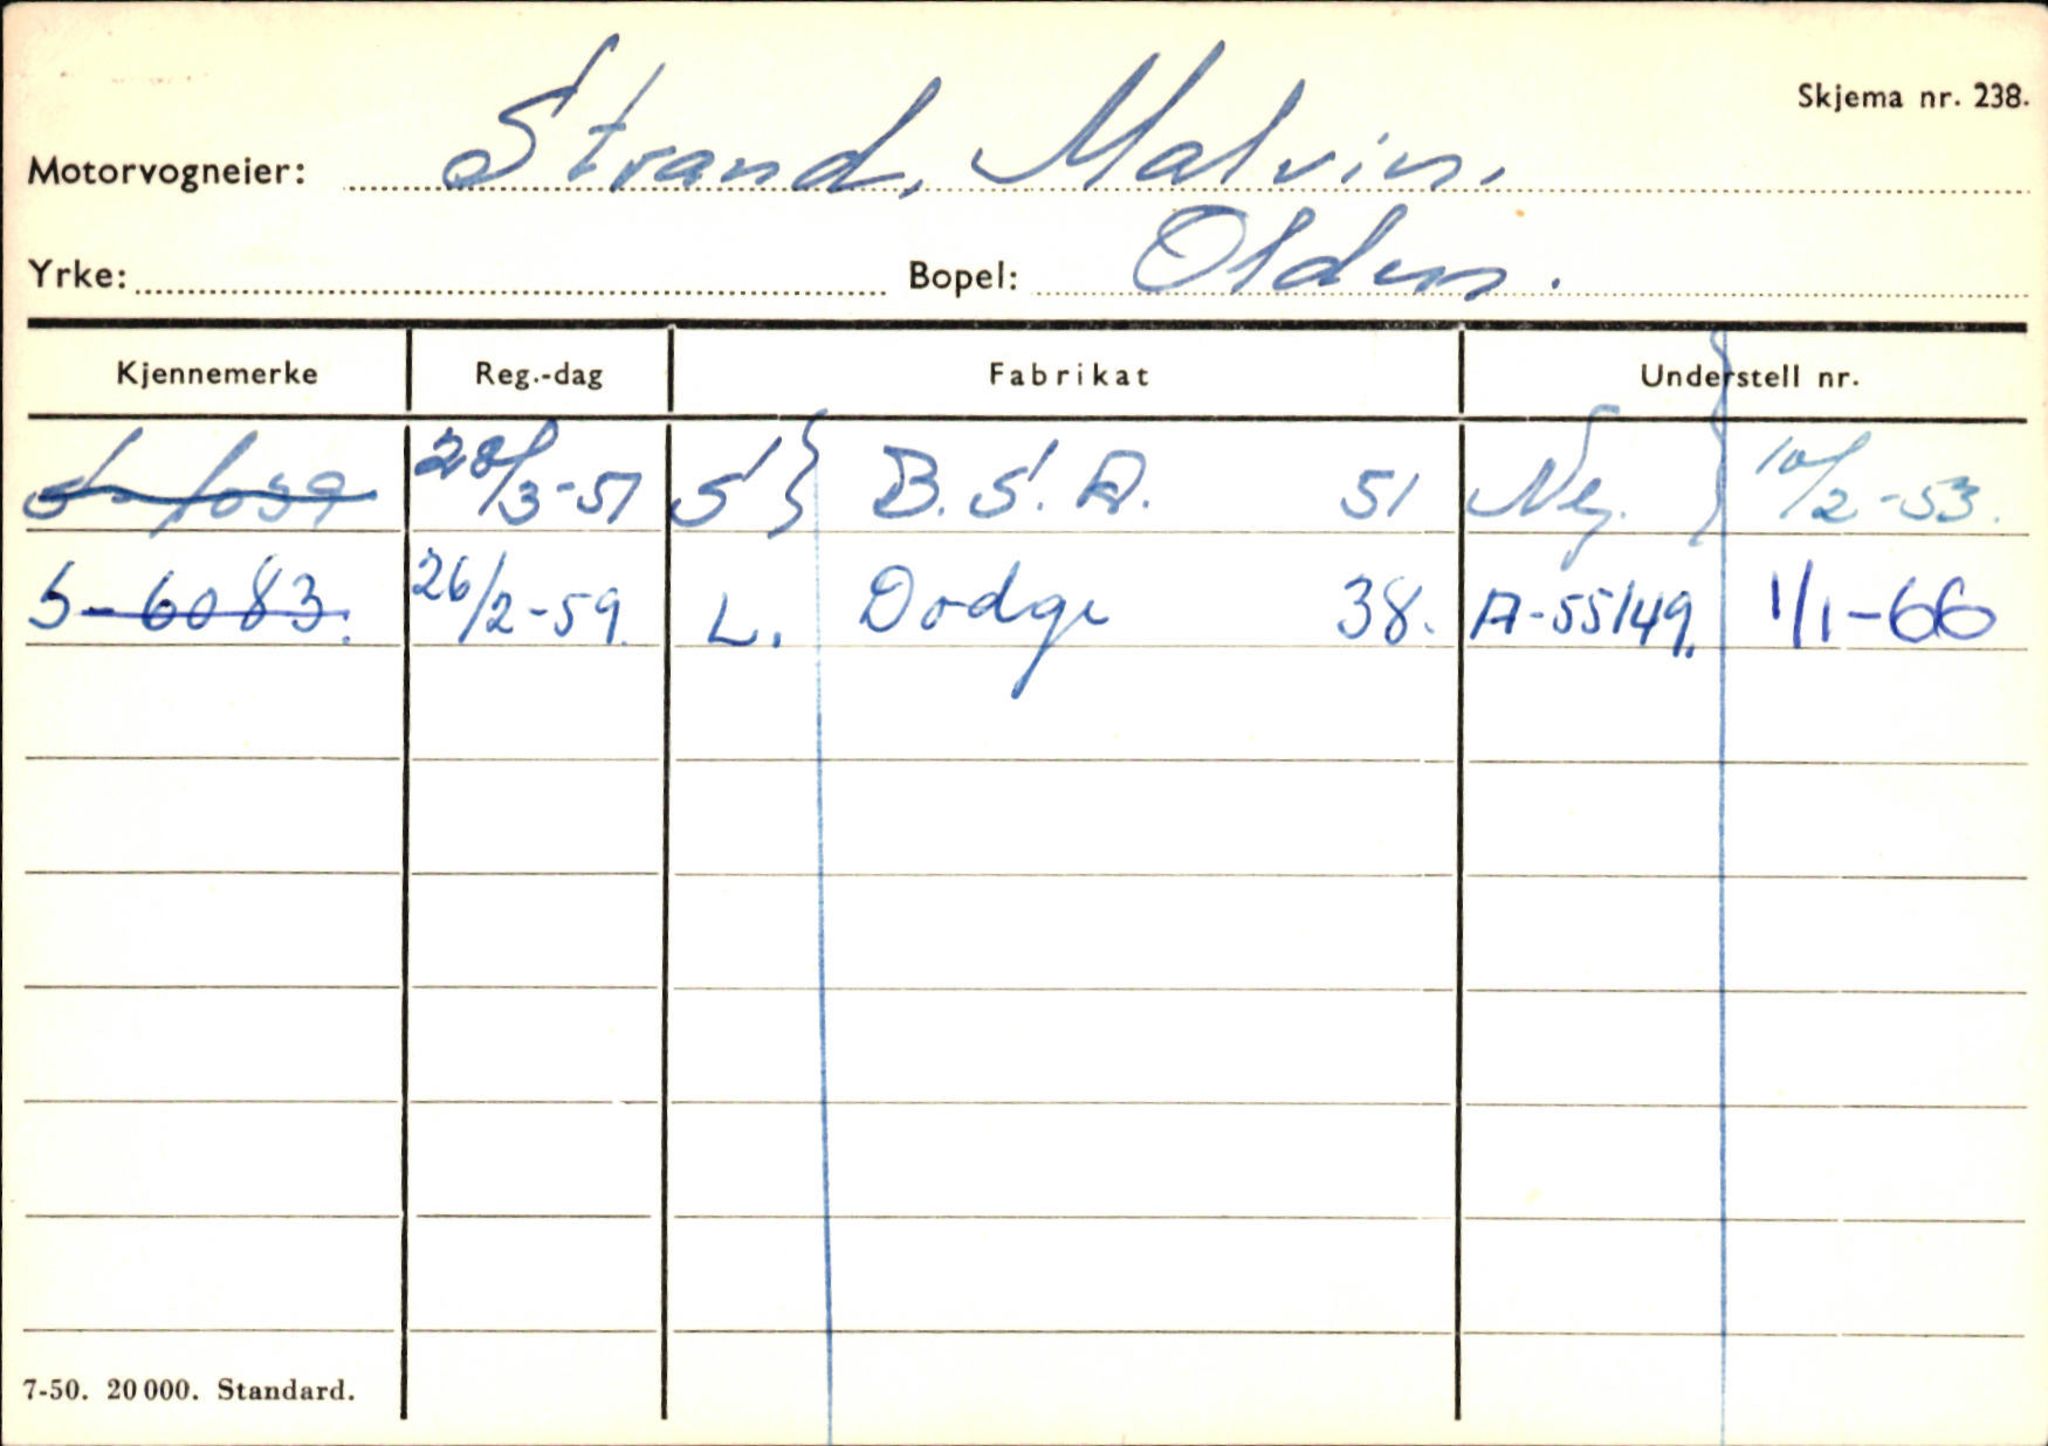 Skjema nr. 238.
Motorvogneier: Strand, Malvin.
Yrke: Bopel: Olden.
Kjennemerke Reg.-dag Fabrikat Understell nr.
28/3-51 S B.S.A. 51 10/2-53.
S-6083. 26/2-59. L. Dodge 38. A-55149. 1/1-66
7-50. 20 000. Standard.